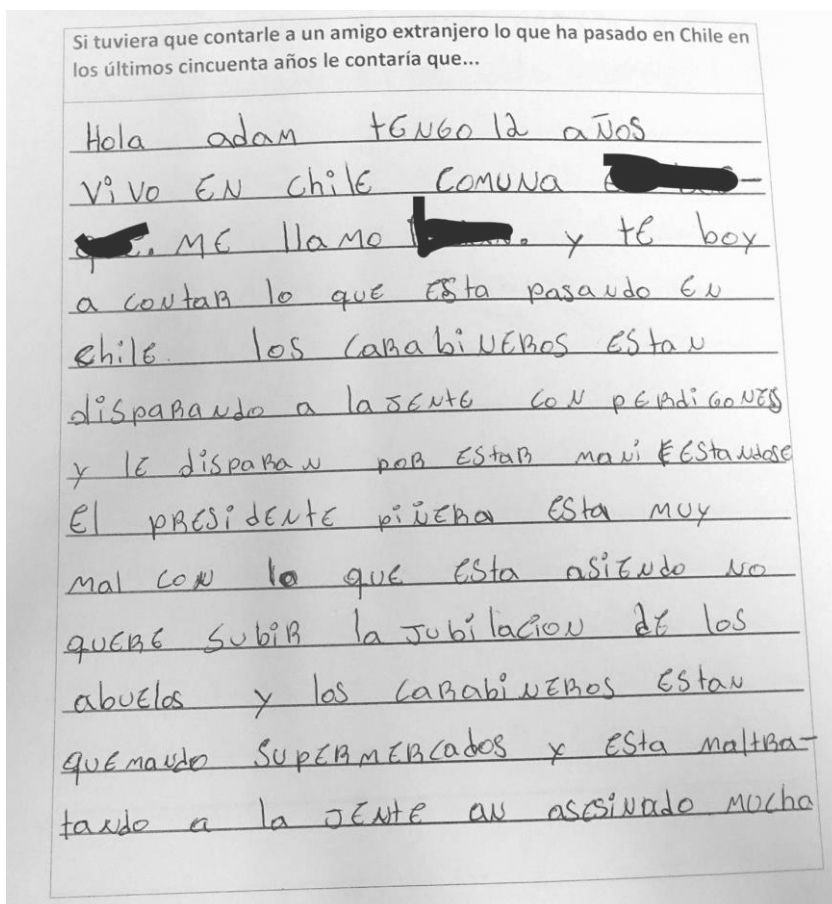 Si tuviera que contarle a un amigo extranjero lo que ha pasado en Chile en
los últimos cincuenta años le contaría que...
Hola adan tENGO 12 aÑOS
ViVO EN chilE COMUNA
ME llaMO y tE boy
a coNtaR lo quE ESta pasaNdo EN
chilE. los CaRabiNERos EStaN
dispaRaNdo a la JENtE CON pERdiGONES
y lE dispaRaN poR EStaR maNiFEStaNdose
El pRESidENtE piÑERa ESta MUy
Mal CON lo quE ESta asiENdo NO
quERE SubiR la Jubilacion dE los
abuElos y los CaRabiNERos EStaN
quEmaNdo SupERMERCados y ESta MaltRa-
taNdo a la JENtE aN asESiNado MUcha